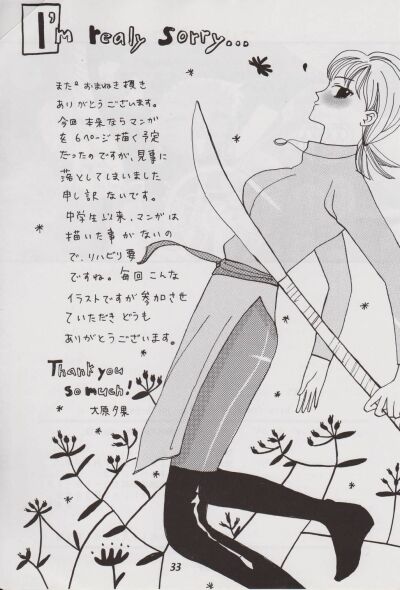 I'm realy sorry...
また。おまねき頂き
ありがとうございます。
今回 本来ならマンガ
を6ページ描く予定
だったのですが、見事に
落としてしまいました
申し訳ないです。
中学生以来、マンガは
描いた事がないの
で、リハビリ要
ですね。毎回こんな
イラストですが参加させ
ていただきどうも
ありがとうございます。
Thank you
so much!
大原夕果
33